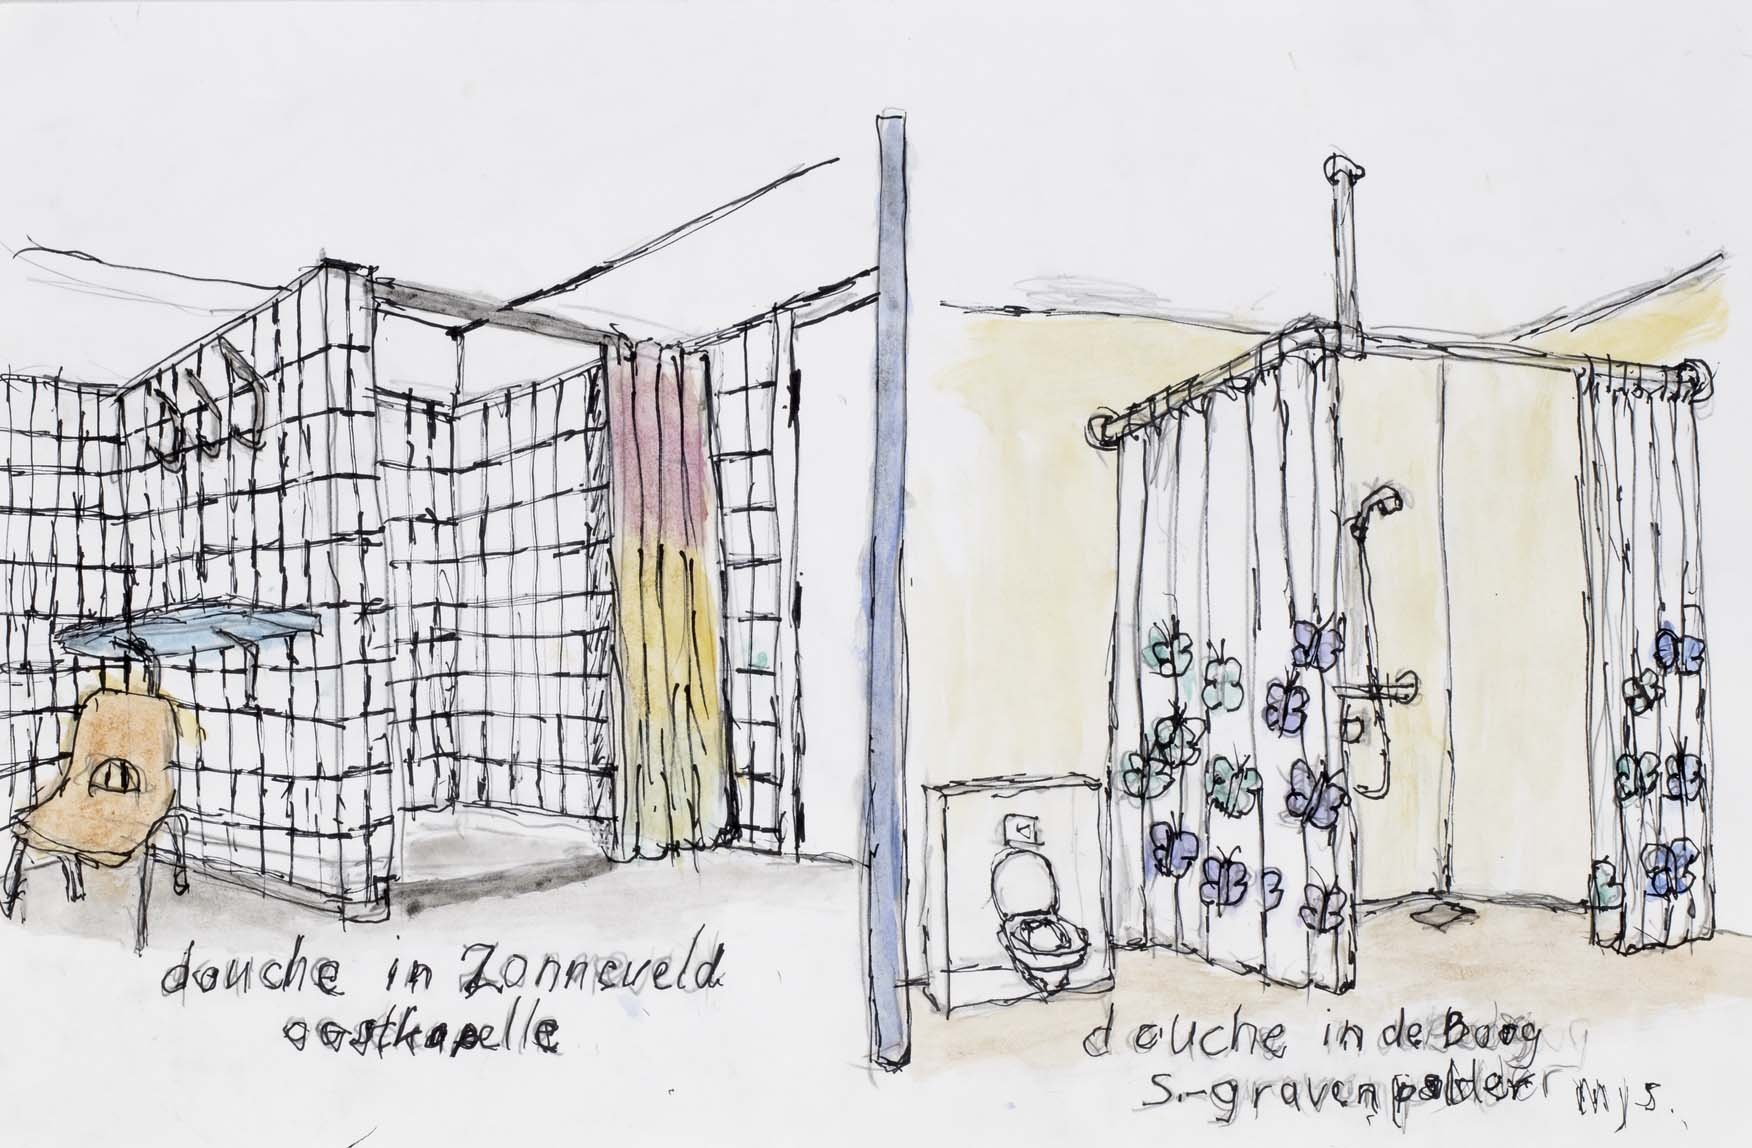 douche in Zonneveld
oostkapelle
douche in de Boog
S.-gravenpolder mys.